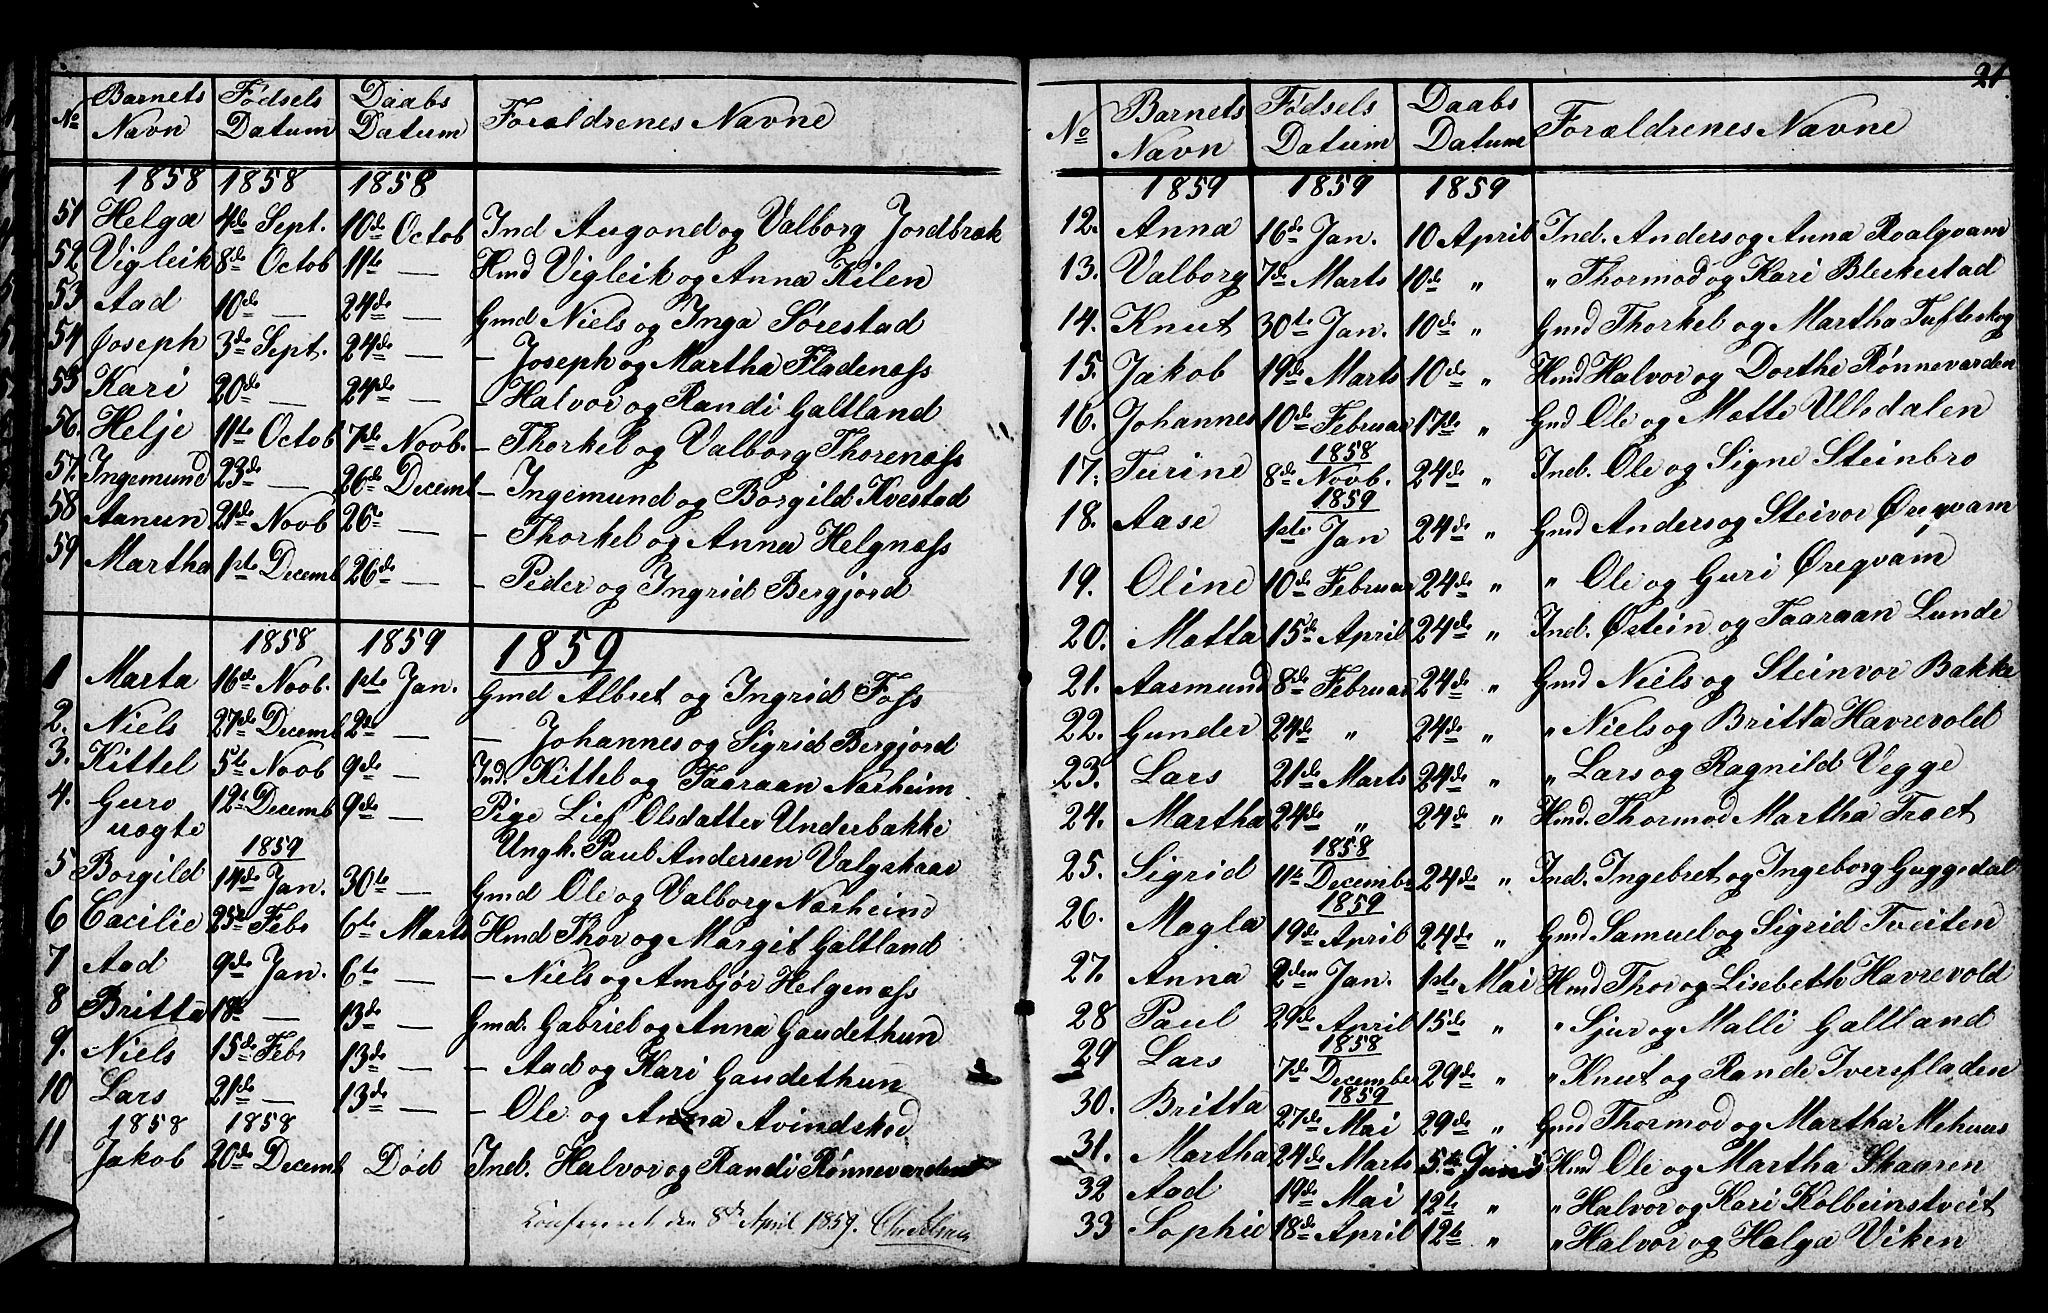 No Barnets Navn Fødsels Datum Daabs Datum Forældrenes Navne
1858 1858 1858
51 Helga 4de Sept. 10de Octob Ind Augond og Valborg Jordbræk
52 Vigleik 8de Octob 11te — Hmd Vigleik og Anna Kilen
53 Aad 10de — 24de — Gmd Niels og Inga Sørestad
54 Joseph 3de Sept. 24de — – Joseph og Martha Fladenæss
55 Kari 20de — 24de — – Halvor og Randi Galtland
56. Helje 11te Octob 7de Novb. – Thorkel og Valborg Thorenæss
57. Ingemund 23de — 26de Decemb – Ingemund og Borgild Kvestad
58 Aanun 21de Novb 26te — – Thorkel og Anna Helgnæss
59 Martha 1ste Decemb 26de — – Peder og Ingrid Bergjord
1858 1859 1859
1 Marta 16de Novb. 1ste Jan. Gmd Albret og Ingrid Foss
2. Niels 27de Decemb 2de — – Johannes og Sigrid Bergjord
3. Kittel 5te Novb 9de — Ind. Kittel og Taaraan Norheim
4. Guro uægte 12te Decemb 9de — Pige Lief Olsdatter Underbakke
Ungk. Paul Andersen Valgskaar
1859
5 Borgild 14de Jan. 30te — Gmd Ole og Valborg Norheim
6 Cacilie 25de Febr 6te Marts Hmd Thor og Margit Galtland
7 Aad 9de Jan. 6te — – Niels og Ambjør Helgenæss
8 Britta 18de — 13de — Gmd. Gabriel og Anna Gaudethun
9. Niels 15de Febr 13de — – Aad og Kari Gaudethun
10 Lars 21de — 13de — – Ole og Anna Avindskod
1858 1858
11 Jakob 20de Decemb Død Ind. Halvor og Randi Rønnevarden
Confereret den 8de April 1859.
21
No Barnets Navn Fødsels Datum Daabs Datum Forældrenes Navne
1859 1859 1859
12. Anna 16de Jan. 10 April Ind. Anders og Anna Roalqvam
13. Valborg 7de Marts 10de „ „ Thormod og Kari Bleskestad
14. Knut 30te Jan. 10de „ Gmd Thorkel og Martha Tafteskog
15. Jakob 19de Marts 10de „ Hmd Halvor og Dorthe Rønnevarden
16. Johannes 10de Februar 17de „ Gmd Ole og Mette Ullsdalen
1858
17. Turine 8de Novb. 24de „ Ind. Ole og Signe Steinbro
1859
18. Aase 1ste Jan 24de „ Gmd Anders og Steivor Øreqvam
19. Oline 10de Februar 24de „ „ Ole og Guri Øreqvam
20. Matta 15de April 24de „ Ind. Østein og Taaraan Lunde
21. Aasmund 8de Februar 24de „ Gmd Niels og Steinvor Bakke
22. Gunder 24de „ 24de „ „ Niels og Britta Havrevold
23. Lars 21de Marts 24de „ „ Lars og Ragnild Vegge
24. Martha 24de „ 24de „ Hmd. Thormod Martha Træt
1858
25. Sigrid 11te December 24de „ Ind. Ingebret og Ingeborg Guggedal
1859
26. Magla 19de April 24de „ Gmd Samuel og Sigrid Tveiten
27. Anna 2den Jan. 1ste Mai Hmd Thor og Lisebeth Havrevold
28 Paul 29de April 15de „ „ Sjur og Malli Galtland
1858
29 Lars 7de December 29de „ „ Knut og Rande Tversfladen
1859
30. Britta 27de Mai 29de „ Gmd Thormod og Martha Mehuus
31. Martha 24de Marts 5te Juni Hmd Ole og Martha Skaaren
32 Aad 19de Mai 12te „ „ Halvor og Kari Kolbeinstveit
33 Sophie 18de April 12te „ „ Halvor og Helga Viken